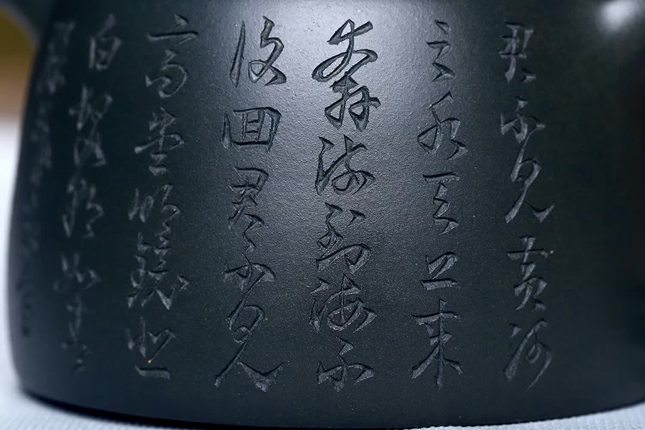 君不見黃河
之水天上来
奔流到海不
復回君不見
高堂明鏡悲
白髮朝如青